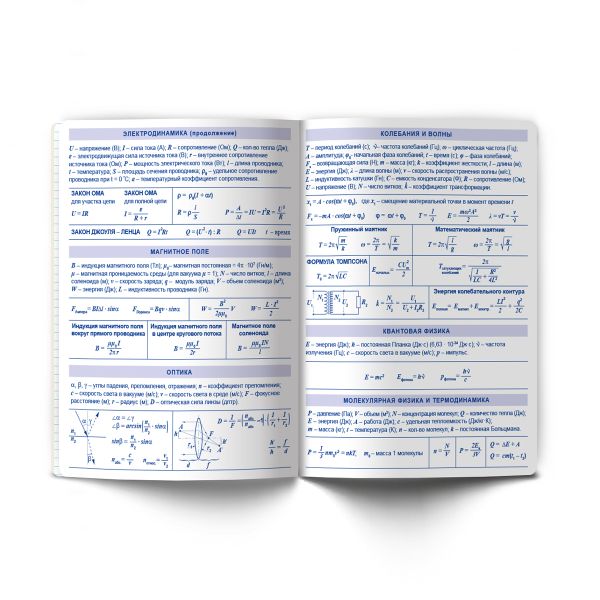 ЭЛЕКТРОДИНАМИКА (продолжение)
U – напряжение (В); I – сила тока (А); R – сопротивление (Ом); Q – кол-во тепла (Дж);
ε – электродвижущая сила источника тока (В); r – внутреннее сопротивление
источника тока (Ом); P – мощность электрического тока (Вт); l – длина проводника;
t – температура; S – площадь сечения проводника; ρ₀ – удельное сопротивление
проводника при t = 0 °C; α – температурный коэффициент сопротивления.
ЗАКОН ОМА
для участка цепи
U = IR
ЗАКОН ОМА
для полной цепи
I = ε / (R + r)
ρ = ρ₀(1 + αt)
R = ρ l/S
P = A/Δt = IU = I²R = U²/R
ЗАКОН ДЖОУЛЯ – ЛЕНЦА Q = I²Rt Q = (U²·t) : R Q = UIt t – время
МАГНИТНОЕ ПОЛЕ
B – индукция магнитного поля (Тл); μ₀ – магнитная постоянная = 4π ·10⁷ (Гн/м);
μ – магнитная проницаемость среды (для вакуума μ = 1); N – число витков; l – длина
соленоида (м); v – скорость заряда; q – модуль заряда; V – объем соленоида (м³);
W – энергия (Дж); L – индуктивность проводника (Гн).
= BIΔl · sinα
= Bqv · sinα
W = B²/2μμ₀ V
W = L · I²/2
Индукция магнитного поля
вокруг прямого проводника
B = μμ₀I / 2πr
Индукция магнитного поля
в центре кругового потока
B = μμ₀I / 2r
Магнитное поле
соленоида
B = μμ₀IN / l
ОПТИКА
α, β, γ – углы падения, преломления, отражения; n – коэффициент преломления;
c – скорость света в вакууме (м/с); v – скорость света в среде (м/с); F – фокусное
расстояние (м); r – радиус (м); D – оптическая сила линзы (дптр).
∠α = ∠γ
КОЛЕБАНИЯ И ВОЛНЫ
T – период колебаний (с); ν – частота колебаний (Гц); ω – циклическая частота (Гц),
A – амплитуда; φ₀ – начальная фаза колебаний; t – время (с); φ – фаза колебаний;
– возвращающая сила (Н); m – масса (кг); k – коэффициент жесткости; l – длина (м),
E – энергия (Дж); λ – длина волны (м); v – скорость распространения волны (м/с);
L – индуктивность катушки (Гн); C – емкость конденсатора (Ф); R – сопротивление (Ом);
U – напряжение (В), N – число витков; k – коэффициент трансформации.
= A · cos(ωt + φ₀), где – смещение материальной точки в момент времени t
= -mA · cos(ωt + φ₀) φ = ωt + φ₀ T = 1/ν E = mω²A²/2 λ = vT = v/ν
Пружинный маятник
T = 2π√(m/k) ω = 2π/T = √(k/m)
Математический маятник
T = 2π√(l/g) ω = 2π/T = √(g/l)
ФОРМУЛА ТОМПСОНА
T₀ = 2π√LC
Энергия колебательного контура
КВАНТОВАЯ ФИЗИКА
E – энергия (Дж); h – постоянная Планка (Дж·с) (6,63 · 10⁻³⁴ Дж·с); ν – частота
излучения (Гц); c – скорость света в вакууме (м/с); p – импульс.
E = mc²
= hν
= hν/c
МОЛЕКУЛЯРНАЯ ФИЗИКА И ТЕРМОДИНАМИКА
P – давление (Па); V – объем (м³); N – концентрация молекул; Q – количество тепла (Дж),
E – энергия (Дж); A – работа (Дж); c – удельная теплоемкость (Дж/кг·К);
m – масса (кг); t – температура (К); n – кол-во молекул; k – постоянная Больцмана.
m₀ – масса 1 молекулы
n = N/V
Q = ΔE + A
Q = cm(t₁ – t₂)